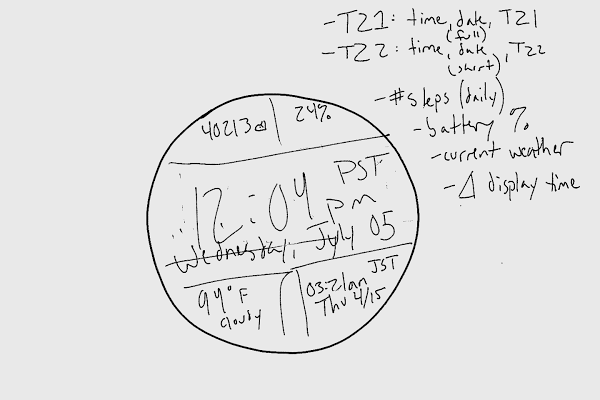 - TZ1: time, date, TZ1
(full)
- TZ2: time, date, TZ2
(short)
- #steps (daily)
- battery %
- current weather
- Δ display time
40213
24%
PST
12:04
pm
Wednesday, July 05
99° F
cloudy
JST
Thu 4/15